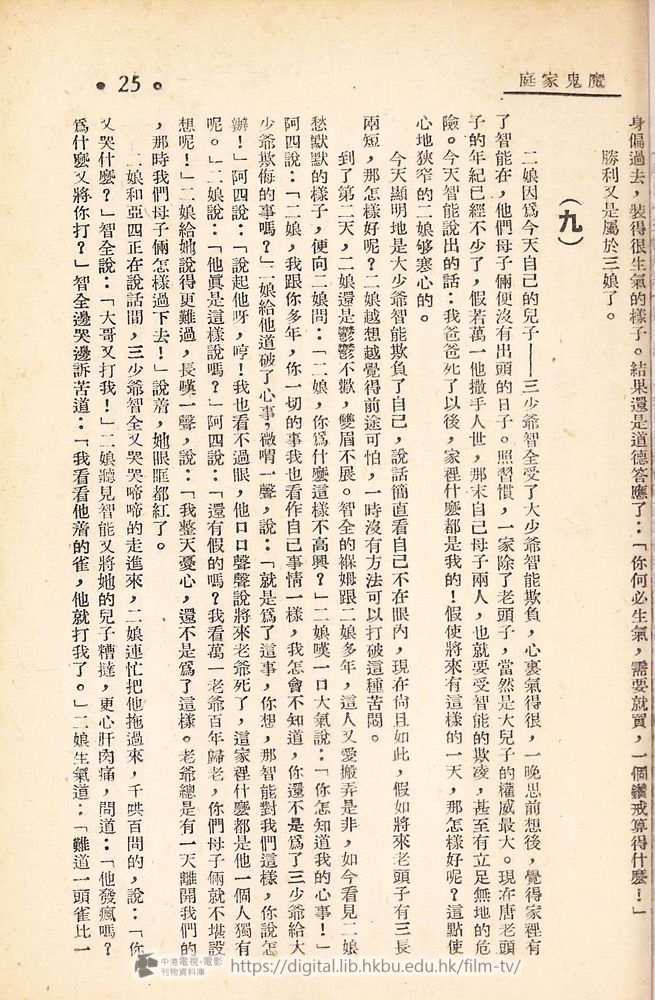 魔鬼家庭
• 25 •
身偏過去，裝得很生氣的樣子。結果還是道德答應了：「你何必生氣，需要就買，一個鑽戒算得什麼！」
勝利又是屬於三娘了。
（九）
二娘因爲今天自己的兒子——三少爺智全受了大少爺智能欺負，心裏氣得很，一晚思前想後，覺得家裡有
了智能在，他們母子倆便沒有出頭的日子。照習慣，一家除了老頭子，當然是大兒子的權威最大。現在唐老頭
子的年紀已經不少了，假若萬一他撒手人世，那末自己母子兩人，也就要受智能的欺凌，甚至有立足無地的危
險。今天智能說出的話：我爸爸死了以後，家裡什麼都是我的！假使將來有這樣的一天，那怎樣好呢？這點使
心地狹窄的二娘够寒心的。
今天顯明地是大少爺智能欺負了自己，說話簡直看自己不在眼內，現在尙且如此，假如將來老頭子有三長
兩短，那怎樣好呢？二娘越想越覺得前途可怕，一時沒有方法可以打破這種苦悶。
到了第二天，二娘還是鬱鬱不歡，雙眉不展。智全的褓姆跟二娘多年，這人又愛搬弄是非，如今看見二娘
愁默默的樣子，便向二娘問：「二娘，你爲什麼這樣不高興？」二娘嘆一口大氣說：「你怎知道我的心事！」
阿四說：「二娘，我跟你多年，你一切的事我也看作自己事情一樣，我怎會不知道，你還不是爲了三少爺給大
少爺欺侮的事嗎？」二娘給他道破了心事，微喟一聲，說：「就是爲了這事，你想，那智能對我們這樣，你說怎
辦！」阿四說：「說起他呀，哼！我也看不過眼，他口口聲聲說將來老爺死了，這家裡什麼都是他一個人獨有
呢。」二娘說：「他眞是這樣說嗎？」阿四說：「還有假的嗎？我看萬一老爺百年歸老，你們母子倆就不堪設
想呢！」二娘給她說得更難過，長嘆一聲，說：「我整天憂心，還不是爲了這樣。老爺總是有一天離開我們的
，那時我們母子倆怎樣過下去！」說着，她眼眶都紅了。
二娘和亞四正在說話間，三少爺智全又哭哭啼啼的走進來，二娘連忙把他拖過來，千哄百問的，說：「你
又哭什麼？」智全說：「大哥又打我！」二娘聽見智能又將她的兒子糟撻，更心肝肉痛，問道：「他發瘋嗎？
爲什麼又將你打？」智全邊哭邊訴苦道：「我看看他着的雀，他就打我了。」二娘生氣道：「難道一頭雀比一
中港電視·電影
刊物資料庫
https://digital.lib.hkbu.edu.hk/film-tv/